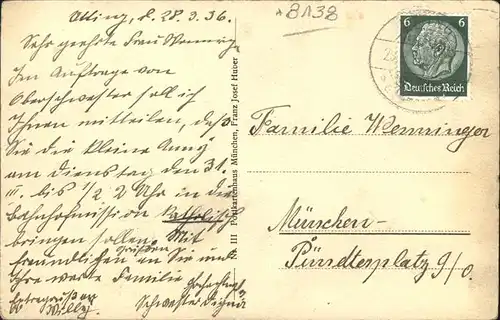 Otting, d. 28. 3. 36.
Sehr geehrte Frau Wenninger
Im Auftrage von
Oberschwester soll ich
Ihnen mitteilen, daß
Sie die kleine Anny
am Dienstag den 31.
III. bis 1/2 2 Uhr in die
Bahnhofmission Katholisch
bringen sollen. Mit
freundlichen Grüßen an Sie und
Ihre werte Familie
Hochachtend
Schwester
Willy.
III Postkartenhaus München, Franz Josef Huber
8138
6 6
Deutsches Reich
Familie Wenninger
München-
Pündterplatz 9/0.